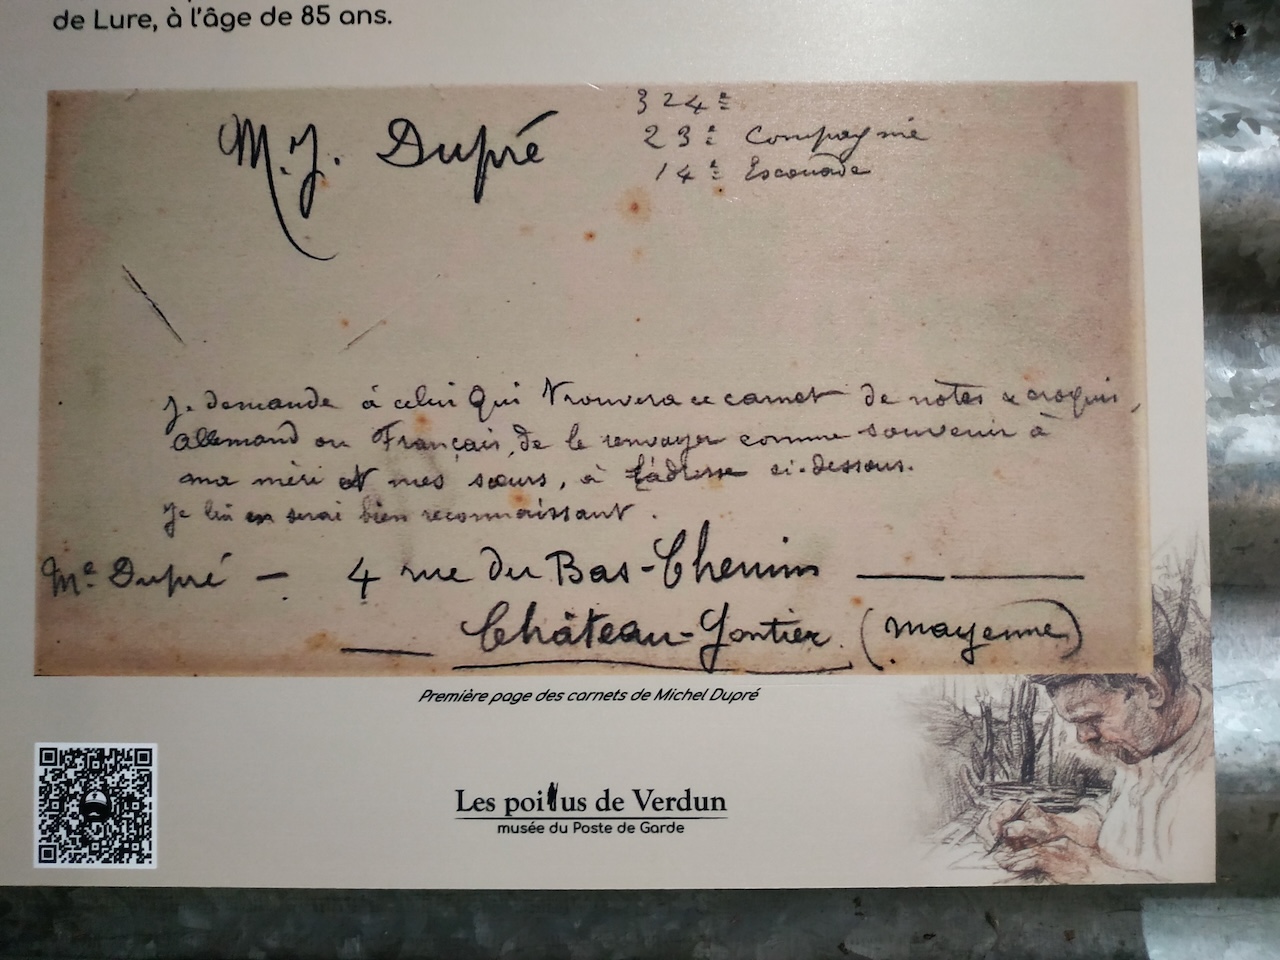 de Lure, à l'âge de 85 ans.
M.J. Dupré
324e
23e Compagnie
14e Escouade
Je demande à celui qui trouvera ce carnet de notes & croquis,
allemand ou Français, de le renvoyer comme souvenir à
ma mère et mes sœurs, à l'adresse ci-dessous.
Je lui en serai bien reconnaissant.
Me Dupré — 4 rue du Bas-Chemin
Château-Gontier (Mayenne)
Première page des carnets de Michel Dupré
Les poilus de Verdun
musée du Poste de Garde